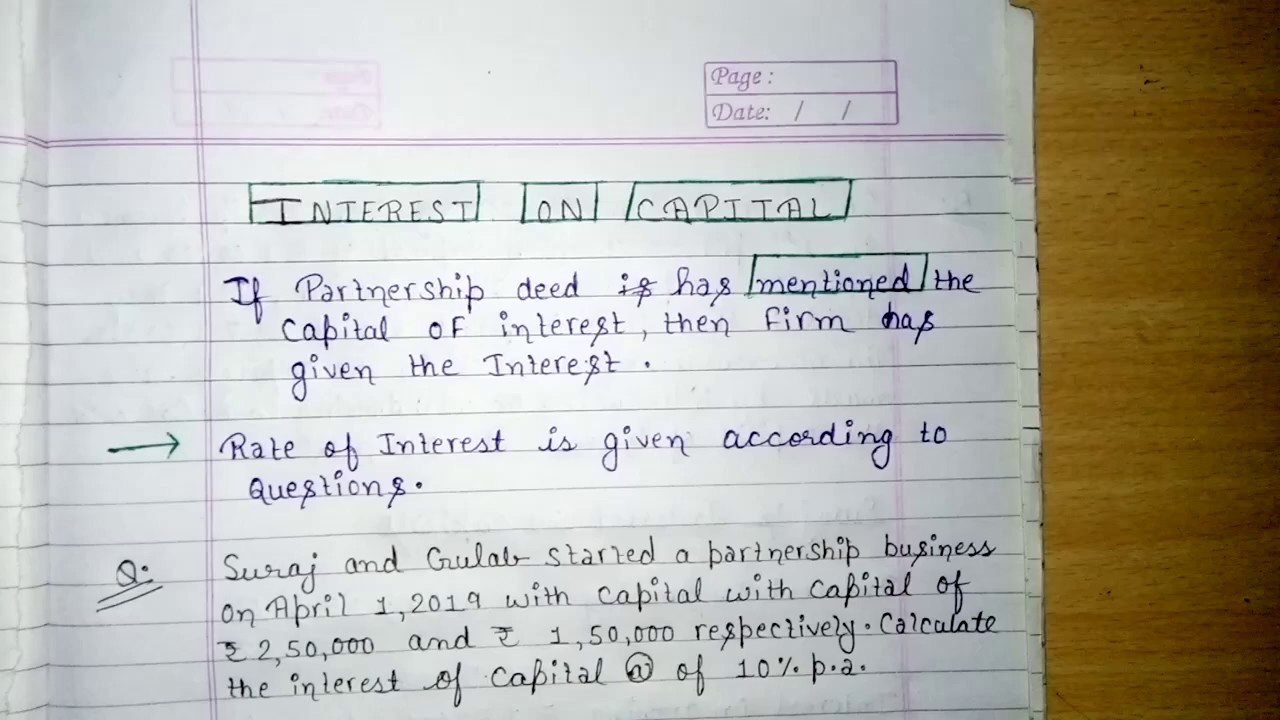 Page :
Date: / /
INTEREST ON CAPITAL
If Partnership deed is has mentioned the
capital of interest, then firm has
given the Interest .
→ Rate of Interest is given according to
Questions.
Q: Suraj and Gulab started a partnership business
on April 1, 2019 with capital with capital of
₹ 2,50,000 and ₹ 1,50,000 respectively. Calculate
the interest of capital @ of 10% p.a.